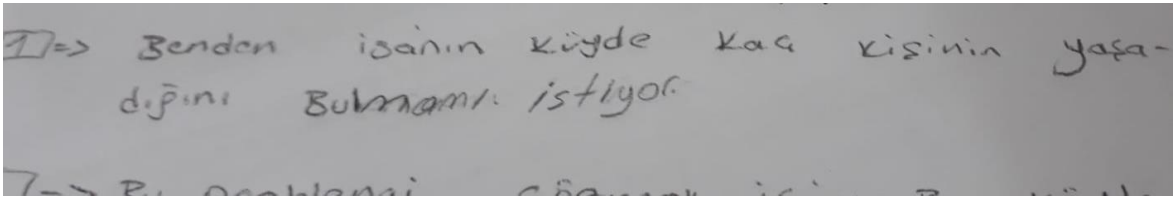 1 => Benden isanın küyde kaç kişinin yaşa-
dığını Bulmamı istiyor.